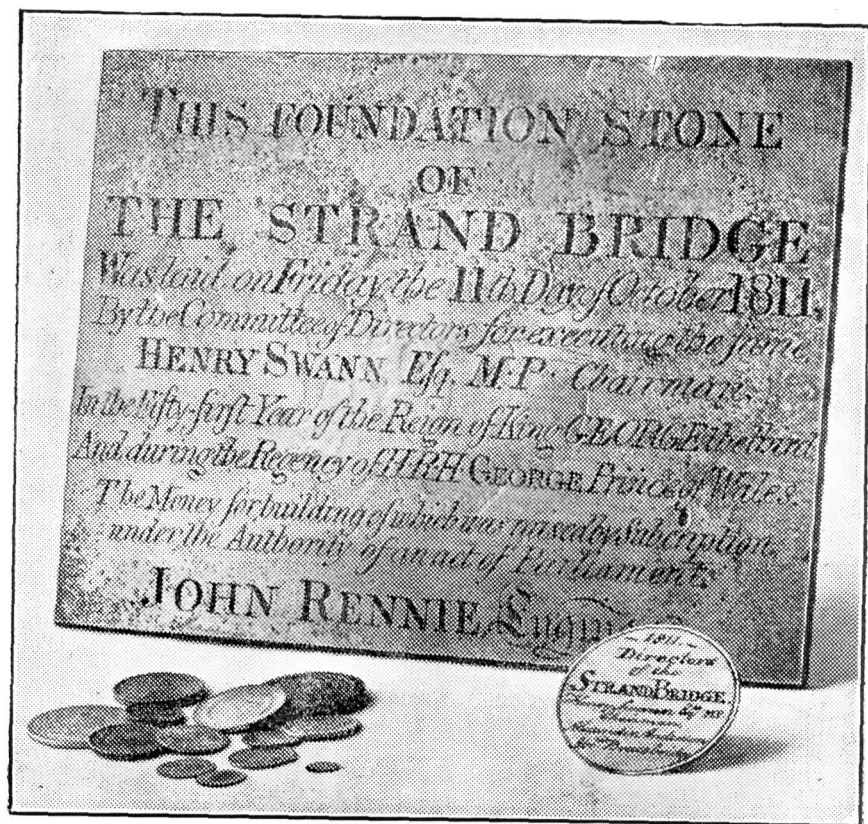 THIS FOUNDATION STONE
OF
THE STRAND BRIDGE
Was laid on Friday the 11th Day of October 1811,
By the Committee of Directors for executing the same
HENRY SWANN Esq. M.P. Chairman.
In the Fifty-first Year of the Reign of King GEORGE the third
And during the Regency of HRH GEORGE Prince of Wales.
The Money for building of which was raised by Subscription,
under the Authority of an act of Parliament.
JOHN RENNIE,
1811.
Directors
of the
STRAND BRIDGE.
Henry Swann Esq. MP
Chairman